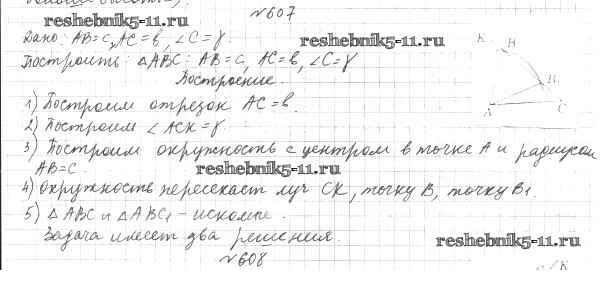 reshebnik5-11.ru
№607
Дано: AB=c, AC=b, ∠C=γ.
reshebnik5-11.ru
Построить: △ABC: AB=c, AC=b, ∠C=γ
Построение.
1) Построим отрезок AC=b.
2) Построим ∠ACK=γ.
3) Построим окружность с центром в точке A и радиусом
AB=c.
reshebnik5-11.ru
4) Окружность пересекает луч CK, точку B, точку B₁.
5) △ABC и △AB₁C - искомые.
Задача имеет два решения.
reshebnik5-11.ru
№608
K
B
B₁
A
C